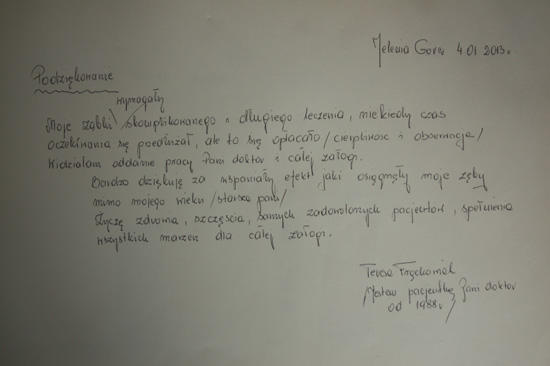 Jelenia Góra 4.01.2013r.
Podziękowanie
wymagały
Moje ząbki skomplikowanego i długiego leczenia, niekiedy czas
oczekiwania się przedłużał, ale to się opłacało /cierpliwość i obserwacja/
Widziałam oddanie pracy Pani doktor i całej załogi.
Bardzo dziękuję za wspaniały efekt jaki osiągnęły moje zęby
mimo mojego wieku /starsza pani/
Życzę zdrowia, szczęścia, samych zadowolonych pacjentów, spełnienia
wszystkich marzeń dla całej załogi.
Teresa
/Jestem pacjentką Pani doktor
od 1988r/